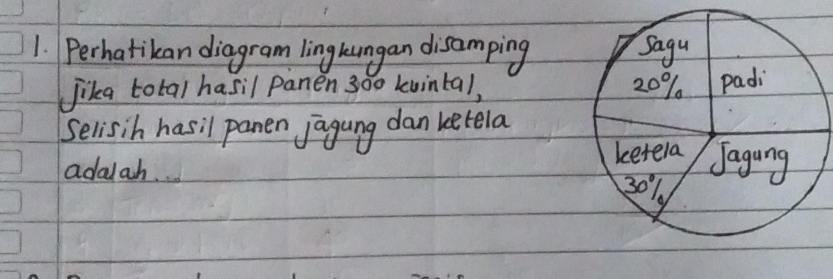 1. Perhatikan diagram lingkungan disamping
Jika total hasil panen 300 kuintal,
Selisih hasil panen jagung dan ketela
adalah...
Sagu
20%
padi
ketela
30%
Jagung